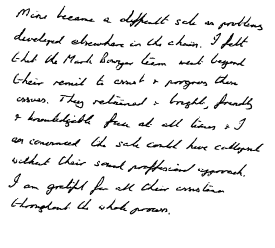 Mine became a difficult sale as problems
developed elsewhere in the chain. I felt
that the Mark Bowyer team went beyond
their remit to assist & progress these
issues. They retained a bright, friendly
& knowledgable face at all times & I
am convinced the sale could have collapsed
without their sound professional approach.
I am grateful for all their assistance
throughout the whole process.